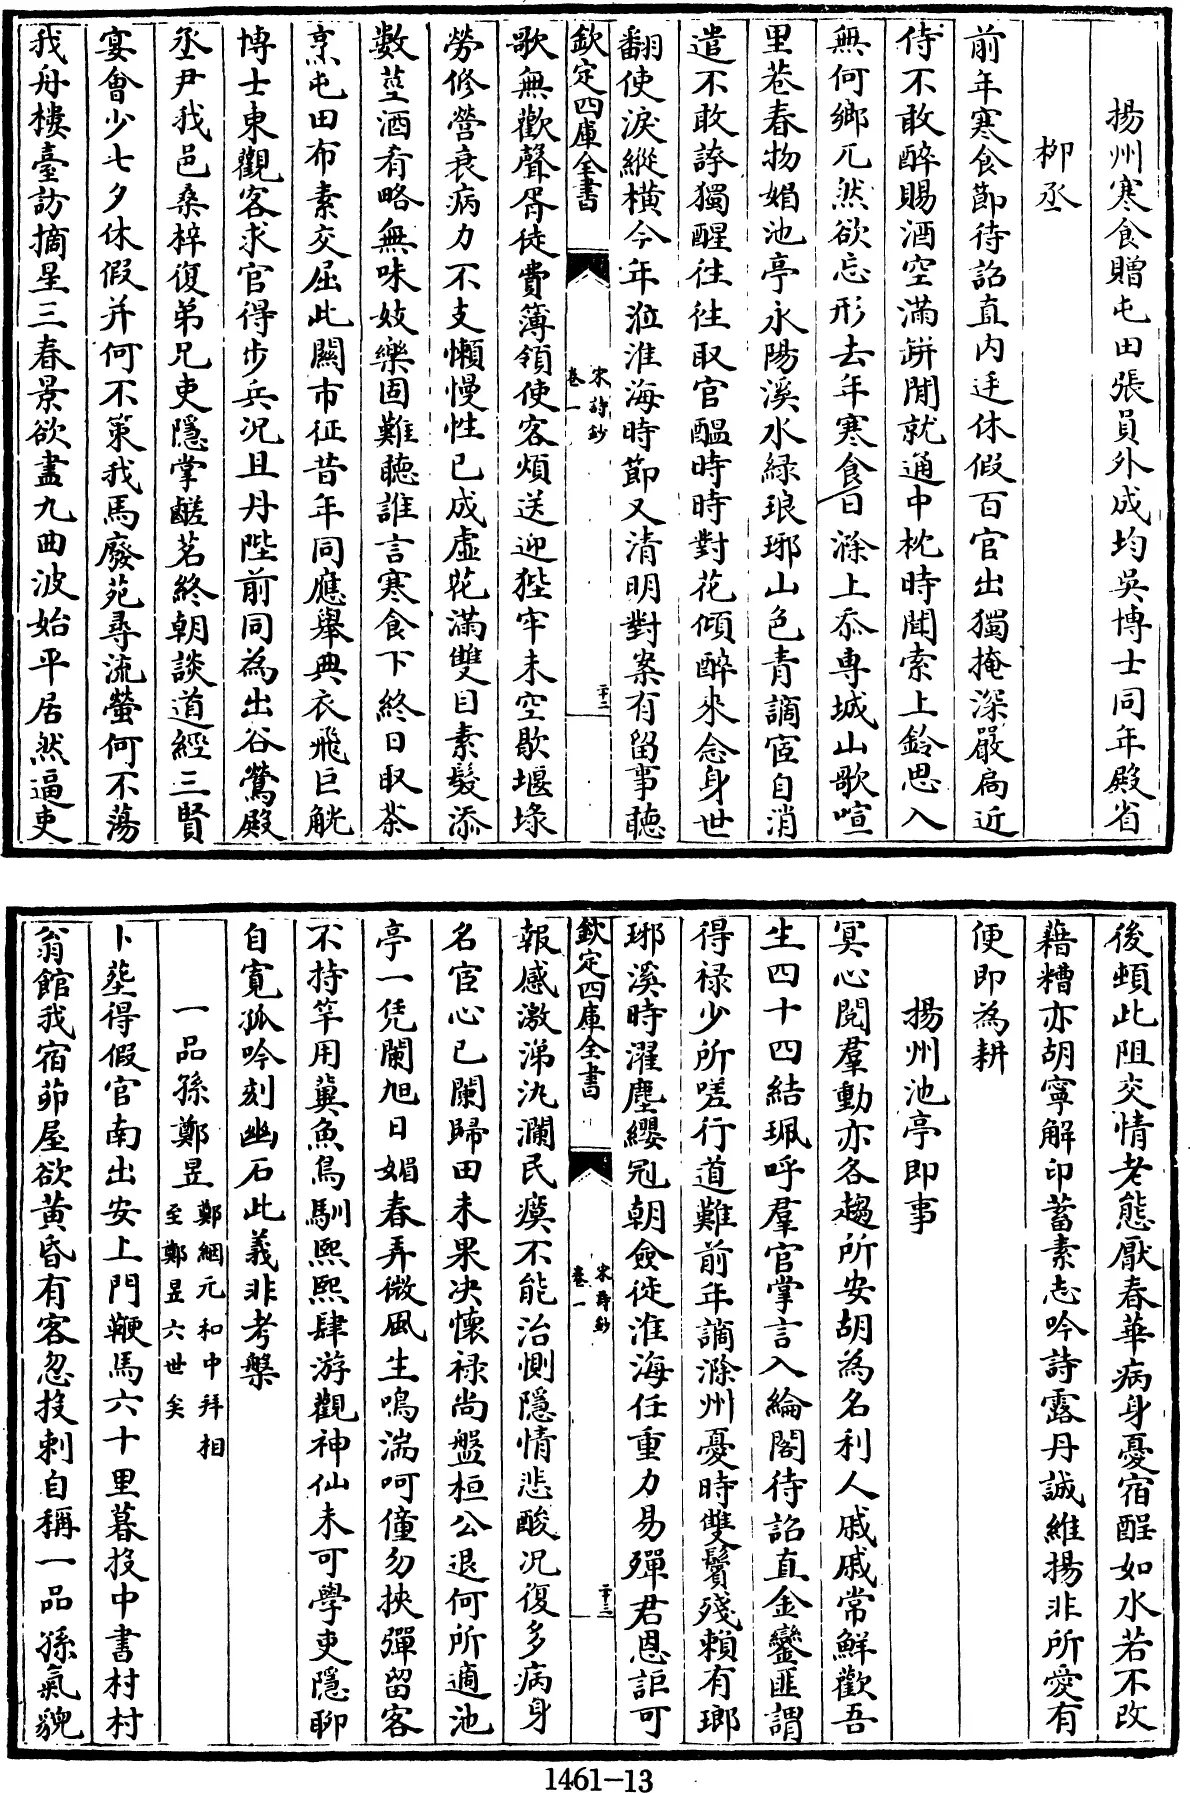 揚州寒食贈屯田張員外成均吳博士同年殿省
柳丞
前年寒食節待詔直內廷休假百官出獨掩深嚴扃近
侍不敢醉賜酒空滿缾閒就通中枕時聞索上鈴思入
無何鄉兀然欲忘形去年寒食日滁上忝專城山歌喧
里巷春物媚池亭永陽溪水綠琅琊山色青謫宦自消
遣不敢誇獨醒往往取官醖時時對花傾醉來念身世
翻使淚縱橫今年涖淮海時節又清明對案有留事聽
欽定四庫全書
宋詩鈔
卷一
二十二
歌無歡聲胥徒費簿領使客煩送迎狴牢未空歇堰埭
勞修營衰病力不支懶慢性已成虛花滿雙目素髮添
數莖酒肴略無味妓樂固難聽誰言寒食下終日取茶
烹屯田布素交屈此關市征昔年同應舉典衣飛巨觥
博士東觀客求官得步兵況且丹陛前同為出谷鶯殿
丞尹我邑桑梓復弟兄吏隱掌鹺茗終朝談道經三賢
宴會少七夕休假并何不策我馬廢苑尋流螢何不蕩
我舟樓臺訪摘星三春景欲盡九曲波始平居然逼吏
後頓此阻交情老態厭春華病身憂宿酲如水若不改
藉糟亦胡寧解印蓄素志吟詩露丹誠維揚非所愛有
便即為耕
揚州池亭即事
冥心閱羣動亦各趨所安胡為名利人戚戚常鮮歡吾
生四十四結珮呼羣官掌言入綸閣待詔直金鑾匪謂
得禄少所嗟行道難前年謫滁州憂時雙鬢殘賴有瑯
琊溪時濯塵纓冠朝僉徙淮海任重力易殫君恩詎可
欽定四庫全書
宋詩鈔
卷一
二十三
報感激涕汍瀾民瘼不能治惻隱情悲酸況復多病身
名宦心已闌歸田未果決懷禄尚盤桓公退何所適池
亭一凭闌旭日媚春弄微風生鳴湍呵僮勿挾彈留客
不持竿用冀魚鳥馴熙熙肆游觀神仙未可學吏隱聊
自寬孤吟刻幽石此義非考槃
一品孫鄭昱 鄭絪元和中拜相
至鄭昱六世矣
卜塟得假官南出安上門鞭馬六十里暮投中書村村
翁館我宿茆屋欲黃昏有客忽投刺自稱一品孫氣貌
1461-13